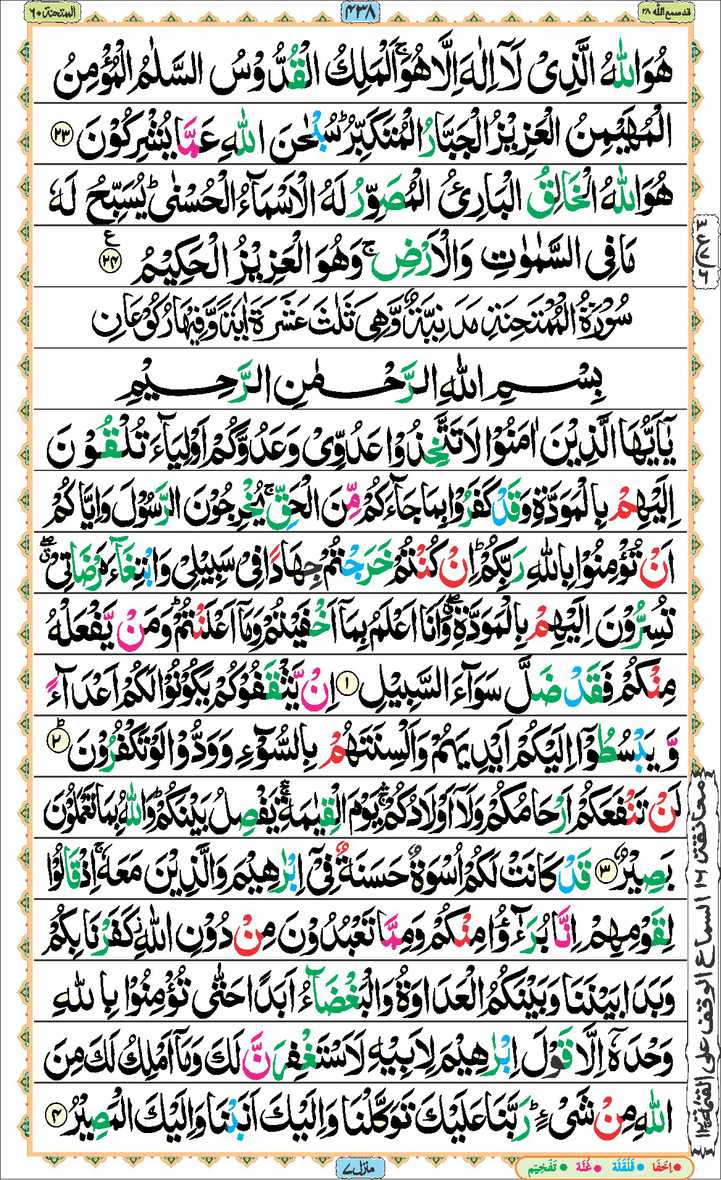 قد سمع الله ٢٨
٤٣٨
الممتحنة ٦٠
هُوَاللّٰهُ الَّذِیْ لَاۤ اِلٰهَ اِلَّا هُوَ ۚ اَلْمَلِكُ الْقُدُّوْسُ السَّلٰمُ الْمُؤْمِنُ
الْمُهَیْمِنُ الْعَزِیْزُ الْجَبَّارُ الْمُتَكَبِّرُ ؕ سُبْحٰنَ اللّٰهِ عَمَّا یُشْرِكُوْنَ ﴿۲۳﴾
هُوَاللّٰهُ الْخَالِقُ الْبَارِئُ الْمُصَوِّرُ لَهُ الْاَسْمَآءُ الْحُسْنٰی ؕ یُسَبِّحُ لَهٗ
مَا فِی السَّمٰوٰتِ وَالْاَرْضِ ۚ وَهُوَ الْعَزِیْزُ الْحَكِیْمُ ﴿۲۴﴾ ع
سُوْرَةُ الْمُمْتَحِنَةِ مَدَنِیَّةٌ وَّهِیَ ثَلٰثَ عَشْرَةَ اٰیَةً وَّفِیْهَا رُكُوْعَانِ
بِسْمِ اللّٰهِ الرَّحْمٰنِ الرَّحِیْمِ
یٰۤاَیُّهَا الَّذِیْنَ اٰمَنُوْا لَا تَتَّخِذُوْا عَدُوِّیْ وَعَدُوَّكُمْ اَوْلِیَآءَ تُلْقُوْنَ
اِلَیْهِمْ بِالْمَوَدَّةِ وَقَدْ كَفَرُوْا بِمَا جَآءَكُمْ مِّنَ الْحَقِّ ۚ یُخْرِجُوْنَ الرَّسُوْلَ وَاِیَّاكُمْ
اَنْ تُؤْمِنُوْا بِاللّٰهِ رَبِّكُمْ ؕ اِنْ كُنْتُمْ خَرَجْتُمْ جِهَادًا فِیْ سَبِیْلِیْ وَابْتِغَآءَ مَرْضَاتِیْ
تُسِرُّوْنَ اِلَیْهِمْ بِالْمَوَدَّةِ وَاَنَا اَعْلَمُ بِمَاۤ اَخْفَیْتُمْ وَمَاۤ اَعْلَنْتُمْ ؕ وَمَنْ یَّفْعَلْهُ
مِنْكُمْ فَقَدْ ضَلَّ سَوَآءَ السَّبِیْلِ ﴿۱﴾ اِنْ یَّثْقَفُوْكُمْ یَكُوْنُوْا لَكُمْ اَعْدَآءً
وَّیَبْسُطُوْۤا اِلَیْكُمْ اَیْدِیَهُمْ وَاَلْسِنَتَهُمْ بِالسُّوْٓءِ وَوَدُّوْا لَوْ تَكْفُرُوْنَ ؕ﴿۲﴾
لَنْ تَنْفَعَكُمْ اَرْحَامُكُمْ وَلَاۤ اَوْلَادُكُمْ ۛۚ یَوْمَ الْقِیٰمَةِ ۛۚ یَفْصِلُ بَیْنَكُمْ ؕ وَاللّٰهُ بِمَا تَعْمَلُوْنَ
بَصِیْرٌ ﴿۳﴾ قَدْ كَانَتْ لَكُمْ اُسْوَةٌ حَسَنَةٌ فِیْۤ اِبْرٰهِیْمَ وَالَّذِیْنَ مَعَهٗ ۚ اِذْ قَالُوْا
لِقَوْمِهِمْ اِنَّا بُرَءٰٓؤُا مِنْكُمْ وَمِمَّا تَعْبُدُوْنَ مِنْ دُوْنِ اللّٰهِ ؗ كَفَرْنَا بِكُمْ
وَبَدَا بَیْنَنَا وَبَیْنَكُمُ الْعَدَاوَةُ وَالْبَغْضَآءُ اَبَدًا حَتّٰی تُؤْمِنُوْا بِاللّٰهِ
وَحْدَهٗۤ اِلَّا قَوْلَ اِبْرٰهِیْمَ لِاَبِیْهِ لَاَسْتَغْفِرَنَّ لَكَ وَمَاۤ اَمْلِكُ لَكَ مِنَ
اللّٰهِ مِنْ شَیْءٍ ؕ رَبَّنَا عَلَیْكَ تَوَكَّلْنَا وَاِلَیْكَ اَنَبْنَا وَاِلَیْكَ الْمَصِیْرُ ﴿۴﴾
منزل ٧
اِخفَا قَلْقَلَة غُنَّة تَفْخِیْم